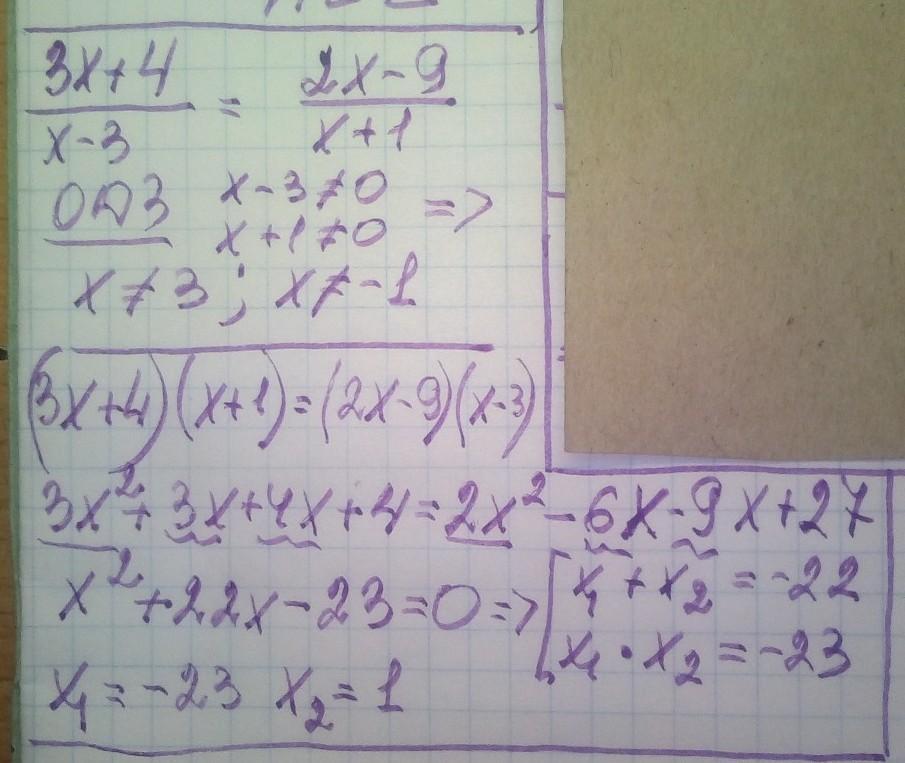 3x+4 / x-3 = 2x-9 / x+1
ОДЗ x-3≠0
x+1≠0 =>
x≠3; x≠-1
(3x+4)(x+1)=(2x-9)(x-3)
3x²+3x+4x+4=2x²-6x-9x+27
x²+22x-23=0=> [x₁+x₂=-22
x₁·x₂=-23
x₁=-23 x₂=1